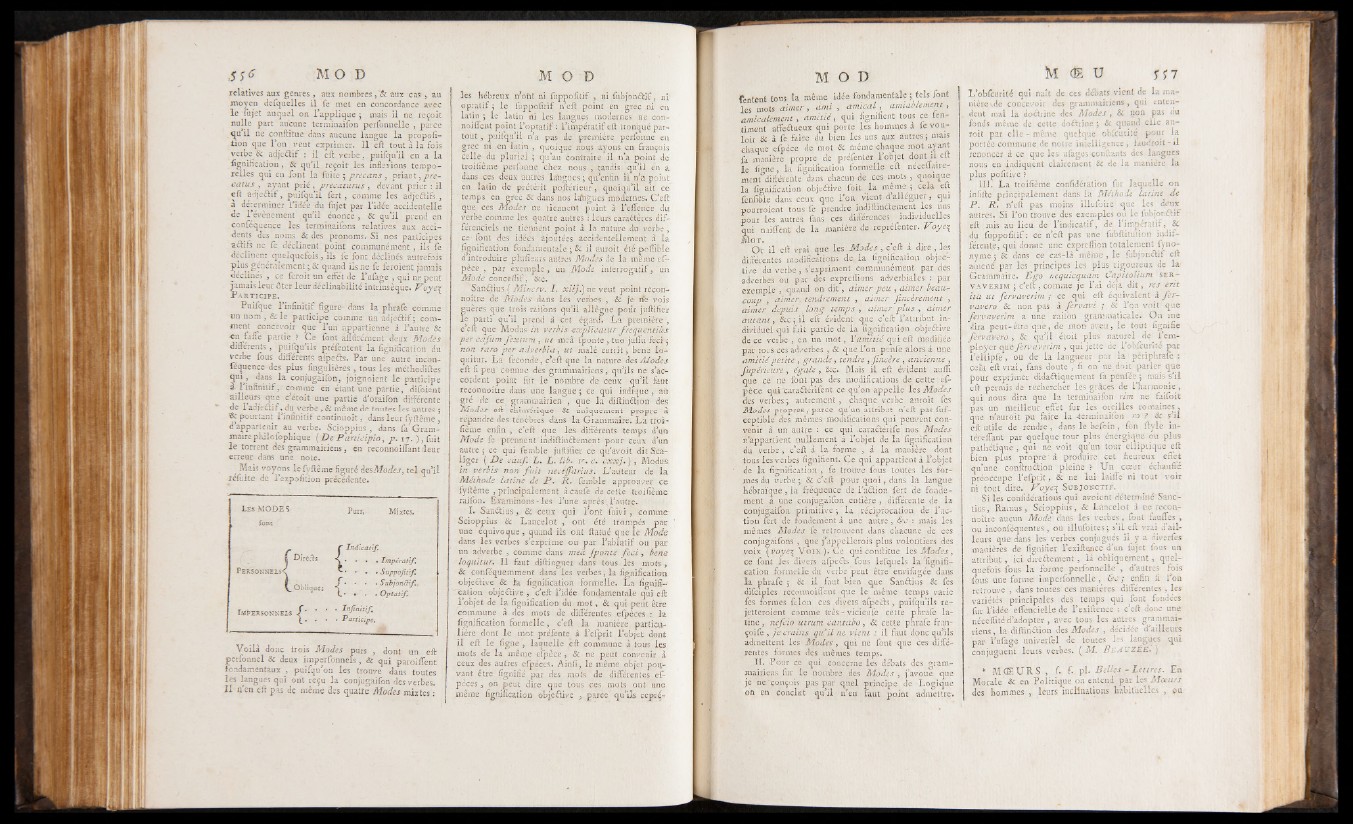 556 M O D
relatives aux genres, aux nombres, & aux cas, au
moyen desquelles il se met en concordance avec
le sujet auquel on l'applique ; mais il ne reçoit
nulle part aucune terminaison personnelle, parce
qu'il ne constitue dans aucune langue la proposi-
tion que l'on veut exprimer. Il est tout à la fois
verbe & adjectif : il est verbe, puisqu'il en a la
signification, & qu'il reçoit les inflexions tempo-
relles qui en sont la suite ; precans, priant, pre-
catus, ayant prié, precaturus, devant prier : il
est adjectif, puisqu'il sert, comme les adjectifs,
à déterminer l'idée du sujet par l'idée accidentelle
de l'événement qu'il énonce, & qu'il prend en
conséquence les terminaisons relatives aux acci-
dents des noms & des pronoms. Si nos participes
actifs ne se déclinent point communément, ils se
déclinent quelquefois, ils se sont déclinés autrefois
plus généralement ; & quand ils ne se seroient jamais
déclinés, ce seroit un effet de l'usage, qui ne peut
jamais leur ôter leur déclinabilité intrinsèque. Voyez
PARTICIPE.
Puisque l'infinitif figure dans la phrase comme
un nom, & le participe comme un adjectif ; com-
ment concevoir que l'un appartienne à l'autre &
en fasse partie ? Ce sont assûrément deux Modes
différents, puisqu'ils présentent la signification du
verbe sous différents aspects. Par une autre incon-
séquence des plus singulières, tous les méthodistes
qui, dans la conjugaison, joignoient le participe
à l'infinitif, comme en étant une partie, disoient
ailleurs que c'étoit une partie d'oraison différente
de l'adjectif, du verbe, & même de toutes les autres ;
& pourtant l'infinitif continuoit, dans leur systême,
d'appartenir au verbe. Scioppius, dans sa Gram-
maire philosophique (De Participio, p. 17.), suit
le torrent des grammairiens, en reconnoissant leur
erreur dans une note.
Mais voyons le systême figuré des Modes, tel qu'il
résulte de l'exposition précédente.
LES MODES Purs. Mixtes.
sont
PERSONNELS Directs Indicatif.
Impératif.
Suppositif.
Obliques Subjonctif.
Optatif.
IMPERSONNELS Infinitif.
Participe.
Voilà donc trois Modes purs, dont un est
personnel & deux impersonnels, & qui paroissent
fondamentaux, puisqu'on les trouve dans toutes
les langues qui ont reçu la conjugaison des verbes.
Il n'en est pas de même des quatre Modes mixtes :
M O D
les hébreux n'ont ni suppositif, ni subjonctif, ni
optatif ; le suppositif n'est point en grec ni en
latin ; le latin ni les langues modernes ne con-
noissent point l'optatif : l'impératif est tronqué par-
tout, puisqu'il n'a pas de première personne en
grec ni en latin, quoique nous ayons en françois
celle du pluriel ; qu'au contraire il n'a point de
troisième personne chez nous, tandis qu'il en a
dans ces deux autres langues ; qu'enfin il n'a point
en latin de prétérit postérieur, quoiqu'il ait ce
temps en grec & dans nos langues modernes. C'est
que ces Modes ne tiennent point à l'essence du
verbe comme les quatre autres : leurs caractères dif-
férenciels ne tiennent point à la nature du verbe,
ce sont des idées ajoutées accidentellement à la
signification fondamentale ; & il auroit été possible
d'introduire plusieurs autres Modes de la même es-
pèce, par exemple, un Mode interrogatif, un
Mode concessif, &c.
Sanctius (Minerv. I. xiij.) ne veut point recon-
noître de Modes dans les verbes, & je ne vois
guères que trois raisons qu'il allègue pour justifier
le parti qu'il prend à cet égard. La première,
c'est que Modus in verbis explicatur frequentiùs
per casum sextum, ut meâ sponte, tuo jussu feci ;
non raro per adverbia, ut malè currit, bene lo-
quitur. La seconde, c'est que la nature des Modes
est si peu connue des grammairiens, qu'ils ne s'ac-
cordent point sur le nombre de ceux qu'il faut
reconnoître dans une langue ; ce qui indique, au
gré de ce grammairien, que la distinction des
Modes est chimérique & uniquement propre à
répandre des ténèbres dans la Grammaire. La troi-
sième enfin, c'est que les différents temps d'un
Mode se prennent indistinctement pour ceux d'un
autre ; ce qui semble justifier ce qu'avoit dit Sca-
liger (De caus. L. L. lib. v. c. cxxj.), Modus
in verbis non fuit necessarius. L'auteur de la
Méthode latine de P. R. semble approuver ce
systême, principalement à cause de cette troisième
raison. Examinons-les l'une après l'autre.
I. Sanctius, & ceux qui l'ont suivi, comme
Scioppius & Lancelot, ont été trompés par
une équivoque, quand ils ont statué que le Mode
dans les verbes s'exprime ou par l'ablatif ou par
un adverbe, comme dans meâ sponte feci, bene
loquitur. Il faut distinguer dans tous les mots,
& conséquemment dans les verbes, la signification
objective & la signification formelle. La signifi-
cation objective, c'est l'idée fondamentale qui est
l'objet de la signification du mot, & qui peut être
commune à des mots de différentes espèces : la
signification formelle, c'est la manière particu-
lière dont le mot présente à l'esprit l'objet dont
il est le signe, laquelle est commune à tous les
mots de la même espèce, & ne peut convenir à
ceux des autres espèces. Ainsi, le même objet pou-
vant être signifié par des mots de différentes es-
pèces, on peut dire que tous ces mots ont une
même signification objective, parce qu'ils repré-
M O D
sentent tous la même idée fondamentale ; tels sont
les mots aimer, ami, amical, amiablement,
amicalement, amitié, qui signifient tous ce sen-
timent affectueux qui porte les hommes à se vou-
loir & à se faire du bien les uns aux autres ; mais
chaque espèce de mot & même chaque mot ayant
sa manière propre de présenter l'objet dont il est
le signe, la signification formelle est nécessaire-
ment différente dans chacun de ces mots, quoique
la signification objective soit la même ; cela est
sensible dans ceux que l'on vient d'alléguer, qui
pourroient tous se prendre indistinctement les uns
pour les autres sans ces différences individuelles
qui naissent de la manière de représenter. Voyez
MOT.
Or il est vrai que les Modes, c'est à dire, les
différentes modifications de la signification objec-
tive du verbe, s'expriment communément par des
adverbes ou par des expressions adverbiales : par
exemple, quand on dit, aimer peu, aimer beau-
coup, aimer tendrement, aimer sincèrement,
aimer depuis long temps, aimer plus, aimer
autant, &c ; il est évident que c'est l'attribut in-
dividuel qui fait partie de la signification objective
de ce verbe, en un mot, l'amitié qui est modifiée
par tous ces adverbes, & que l'on pense alors à une
amitié petite, grande, tendre, sincère, ancienne,
supérieure, égale, &c. Mais il est évident aussi
que ce ne sont pas des modifications de cette es-
pèce qui caractérisent ce qu'on appelle les Modes
des verbes ; autrement, chaque verbe auroit ses
Modes propres, parce qu'un attribut n'est pas sus-
ceptible des mêmes modifications qui peuvent con-
venir à un autre : ce qui caractérise nos Modes
n'appartient nullement à l'objet de la signification
du verbe, c'est à la forme, à la manière dont
tous les verbes signifient. Ce qui appartient à l'objet
de la signification, se trouve sous toutes les for-
mes du verbe ; & c'est pourquoi, dans la langue
hébraïque, la fréquence de l'action sert de fonde-
ment à une conjugaison entière, différente de la
conjugaison primitive ; la réciprocation de l'ac-
tion sert de fondement à une autre, &c : mais les
mêmes Modes se retrouvent dans chacune de ces
conjugaisons, que j'appellerois plus volontiers des
voix (voyez VOIX.). Ce qui constitue les Modes,
ce sont les divers aspects sous lesquels la signifi-
cation formelle du verbe peut être envisagée dans
la phrase ; & il faut bien que Sanctius & ses
disciples reconnoissent que le même temps varie
ses formes selon ces divers aspects, puisqu'ils re-
jetteroient comme très-vicieuse cette phrase la-
tine, nescio utrum cantabo, & cette phrase fran-
çoise, je crains qu'il ne viens : il faut donc qu'ils
admettent les Modes, qui ne sont que ces diffé-
rentes formes des mêmes temps.
II. Pour ce qui concerne les débats des gram-
mairiens sur le nombre des Modes, j'avoue que
je ne conçois pas par quel principe de Logique
on en conclut qu'il n'en faut point admettre.
M Œ U 557
L'obscurité qui naît de ces débats vient de la ma-
nière de concevoir des grammairiens, qui enten-
dent mal la doctrine des Modes, & non pas du
fonds même de cette doctrine ; & quand elle au-
roit par elle-même quelque obscurité pour la
portée commune de notre intelligence, faudroit-il
renoncer à ce que les usages constants des langues
nous en indiquent clairement & de la manière la
plus positive ?
III. La troisième considération sur laquelle on
insiste principalement dans la Méthode latine de
P. R. n'est pas moins illusoire que les deux
autres. Si l'on trouve des exemples où le subjonctif
est mis au lieu de l'indicatif, de l'impératif, &
du suppositif : ce n'est pas une substitution indif-
férente, qui donne une expression totalement syno-
nyme ; & dans ce cas-là même, le subjonctif est
amené par les principes les plus rigoureux de la
Grammaire. Ego nequicquam Capitolium SER-
VAVERIM ; c'est, comme je l'ai déjà dit, res erit
ita ut servaverim : ce qui est équivalent à ser-
vavero & non pas à servavi ; & l'on voit que
servaverim a une raison grammaticale. On me
dira peut-être que, de mon aveu, le tout signifie
servavero, & qu'il étoit plus naturel de l'em-
ployer que servaverim, qui jette de l'obscurité par
l'ellipse, ou de la langueur par la périphrase :
cela est vrai, sans doute, si on ne doit parler que
pour exprimer didactiquement sa pensée ; mais s'il
est permis de rechercher les grâces de l'harmonie,
qui nous dira que la terminaison rim ne faisoit
pas un meilleur effet sur les oreilles romaines,
que n'auroit pu faire la terminaison ro ? & s'il
est utile de rendre, dans le besoin, son style in-
téressant par quelque tour plus énergique ou plus
pathétique, qui ne voit qu'un tour elliptique est
bien plus propre à produire cet heureux effet
qu'une construction pleine ? Un cœur échauffé
préoccupe l'esprit, & ne lui laisse ni tout voir
ni tout dire. Voyez SUBJONCTIF.
Si les considérations qui avoient déterminé Sanc-
tius, Ramus, Scioppius, & Lancelot à ne recon-
noître aucun Mode dans les verbes, sont fausses,
ou inconséquentes, ou illusoires ; s'il est vrai d'ail-
leurs que dans les verbes conjugués il y a diverses
manières de signifier l'existence d'un sujet sous un
attribut, ici directement, là obliquement, quel-
quefois sous la forme personnelle, d'autres fois
sous une forme impersonnelle, &c ; enfin si l'on
retrouve, dans toutes ces manières différentes, les
variétés principales des temps qui sont fondées
sur l'idée essencielle de l'existence : c'est donc une
nécessité d'adopter, avec tous les autres grammai-
riens, la distinction des Modes, décidée d'ailleurs
par l'usage universel de toutes les langues qui
conjuguent leurs verbes. (M. BEAUZÉE.)
* MŒURS, s. f. pl. Belles-Lettres. En
Morale & en Politique on entend par les Mœurs
des hommes, leurs inclinations habituelles, ou